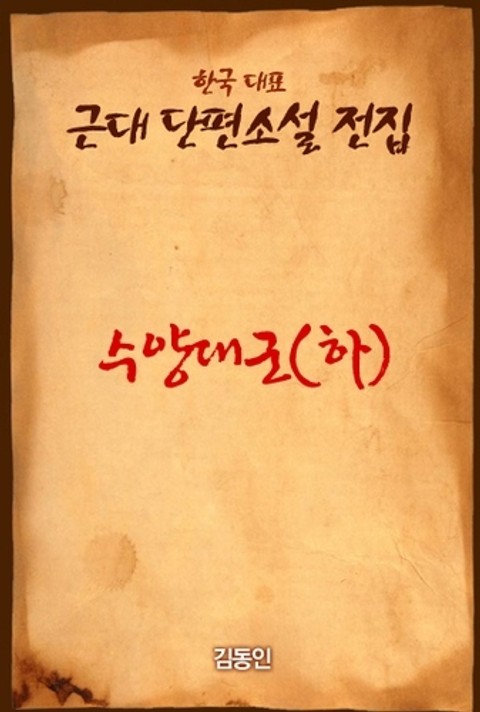 한국 대표
근대 단편소설 전집
수양대군(하)
김동인